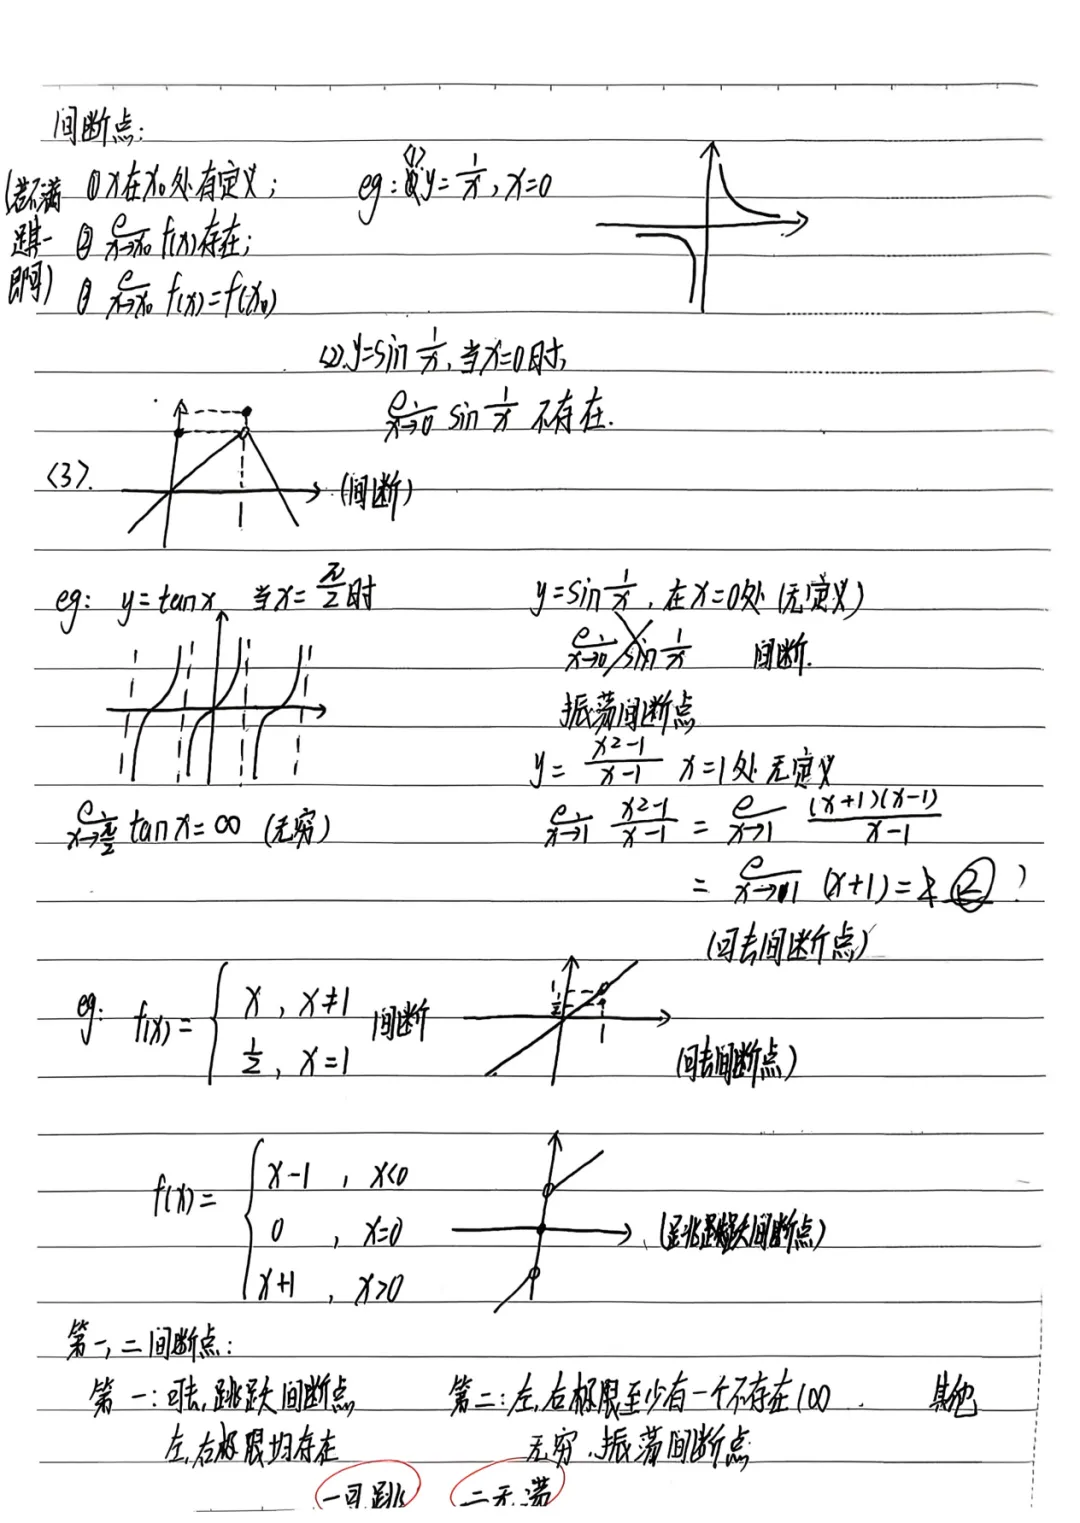 间断点:
(若不满足其一即可)
① x在x₀处有定义;
② lim x→x₀ f(x)存在;
③ lim x→x₀ f(x)=f(x₀)
eg: <1> y=1/x, x=0
<2>. y=sin 1/x, 当x=0时,
lim x→0 sin 1/x 不存在.
<3>. (间断)
eg: y=tanx, 当x=π/2时
lim x→π/2 tanx=∞ (无穷)
y=sin 1/x, 在x=0处 (无定义)
lim x→0 sin 1/x 间断.
振荡间断点
y= x²-1/x-1 x=1处 无定义
lim x→1 x²-1/x-1 = lim x→1 (x+1)(x-1)/x-1
= lim x→1 (x+1)= 2 ?
(可去间断点)
eg: f(x)= { x, x≠1 间断
1/2, x=1
1
1/2
(可去间断点)
f(x)= { x-1, x<0
0, x=0
x+1, x>0
(跳跃间断点)
第一,二间断点:
第一:可去,跳跃间断点
左,右极限均存在
第二:左,右极限至少有一个不存在(∞. 其他
无穷.振荡间断点
一可跳 二无荡